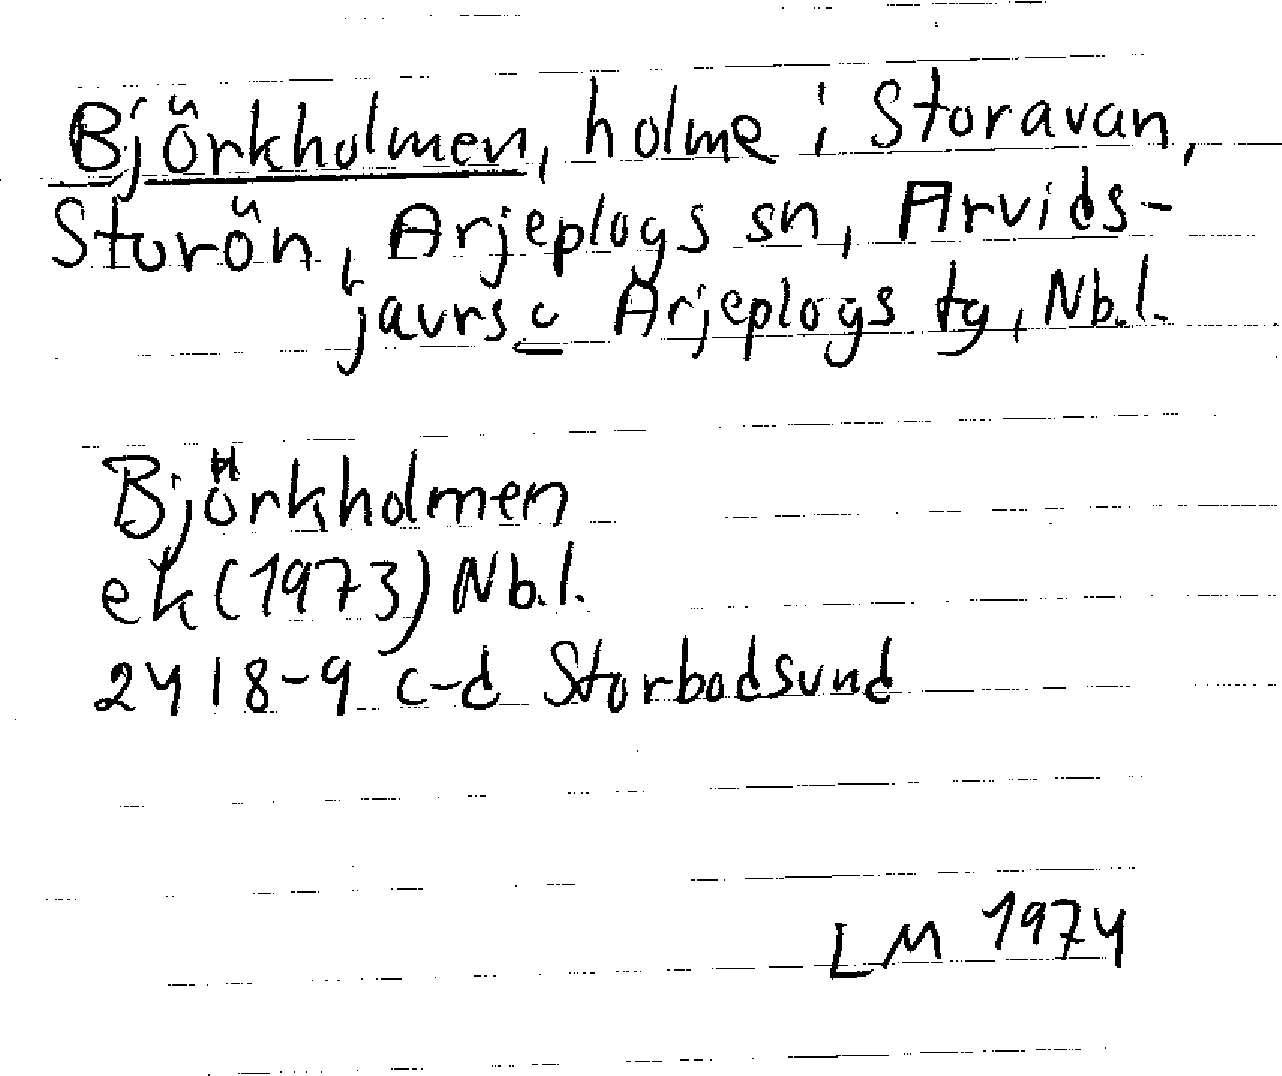 Björkholmen, holme i Storavan,
Storön, Arjeplogs sn, Arvids-
javrs o Arjeplogs tg, Nb.l.
Björkholmen
ek (1973) Nb.l.
2418-9 c-d Storbodsund
LM 1974